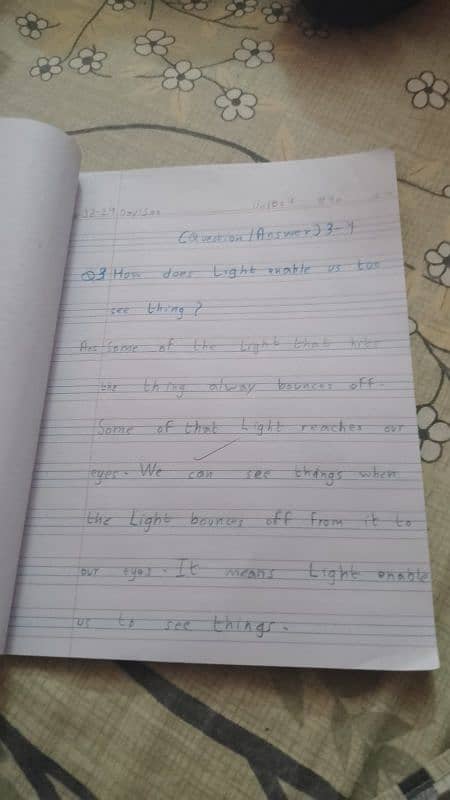 (Question/Answer) 3-4
Q3 How does Light enable us too
see thing?
Ans Some of the Light that hits
the thing alway bounces off.
Some of that Light reaches our
eyes. We can see things when
the Light bounces off from it to
our eyes. It means Light enable
us to see things.